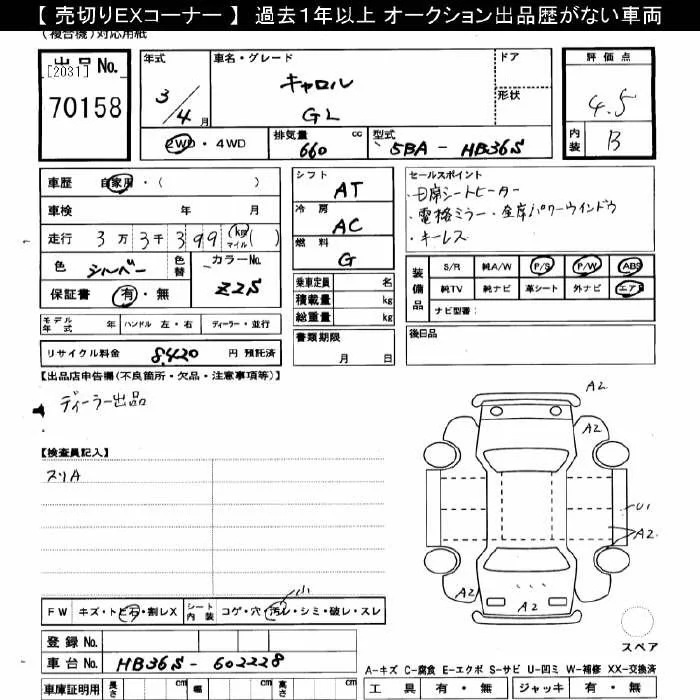 【 売切りEXコーナー 】 過去１年以上 オークション出品歴がない車両
(複合機)対応用紙
出品 No.
[2031]
70158
年式
3/4月
車名・グレード
キャロル
GL
ドア
形状
評価点
4.5
内装 B
2WD・4WD
排気量 cc
660
型式
5BA - HB36S
車歴 自家用・( )
車検 年 月
走行 3万3千399 (km マイル)( )
色 シルバー 色替
カラーNo.
Z2S
保証書 有・無
シフト
AT
冷房
AC
燃料
G
乗車定員 名
積載量 kg
総重量 kg
セールスポイント
・電格ミラー・全席パワーウインドウ
・キーレス
装備品
S/R 純A/W P/S P/W ABS
純TV 純ナビ 革シート 外ナビ エアB
ナビ型番:
モデル年式 年 ハンドル 左・右 ディーラー・並行
リサイクル料金 8,420 円 預託済
書類期限
月 日
後日品
【出品店申告欄(不良箇所・欠品・注意事項等)】
ディーラー出品
【検査員記入】
スリA
A2
A2
U1
A2
A2
A2
スペア
FW キズ・トビ石・割レX シート内装 コゲ・穴・汚レ・シミ・破レ・スレ
小
登録 No.
車台 No. HB36S - 602228
車庫証明用 長さ cm 幅 cm 高さ cm
A-キズ C-腐食 E-エクボ S-サビ U-凹ミ W-補修 XX-交換済
工具 有・無 ジャッキ 有・無